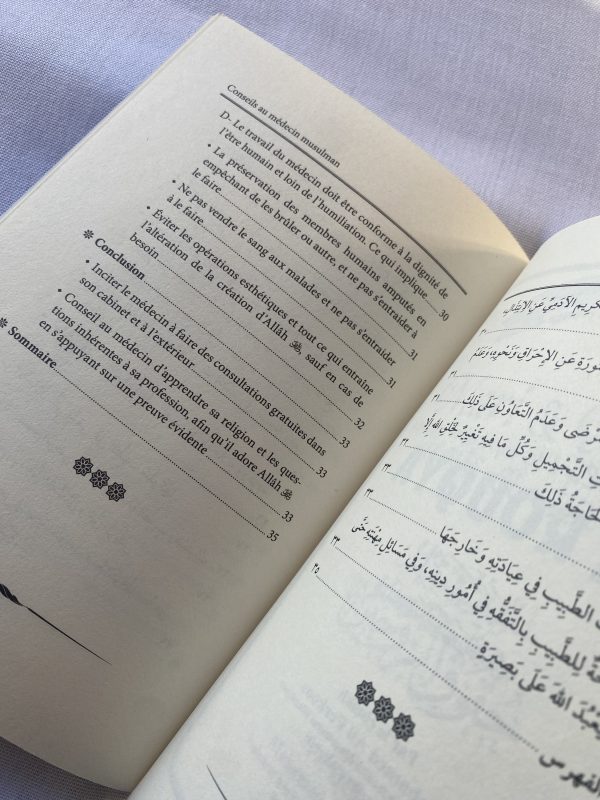 Conseils au médecin musulman
D- Le travail du médecin doit être conforme à la dignité de
l'être humain et loin de l'humiliation. Ce qui implique.... 30
• La préservation des membres humains amputés en
empêchant de les brûler ou autre, et ne pas s'entraider à
le faire........ 31
• Ne pas vendre le sang aux malades et ne pas s'entraider
à le faire........ 31
• Éviter les opérations esthétiques et tout ce qui entraîne
l'altération de la création d'Allâh ﷻ, sauf en cas de
besoin........ 32
❃ Conclusion........ 33
• Inciter le médecin à faire des consultations gratuites dans
son cabinet et à l'extérieur........ 33
• Conseil au médecin d'apprendre sa religion et les ques-
tions inhérentes à sa profession, afin qu'il adore Allâh ﷻ
en s'appuyant sur une preuve évidente........ 33
❃ Sommaire........ 35
الآدَمِيِّ عَنِ
٣٠
عَنِ الإِحْرَاقِ وَنَحْوِهِ، وَعَدَمُ
٣١
وَعَدَمُ التَّعَاوُنِ عَلَى ذَلِكَ
٣١
التَّجْمِيلِ وَكُلُّ مَا فِيهِ تَغْيِيرٌ لِخَلْقِ اللهِ إِلَّا
ذَلِكَ........ ٣٢
٣٣
الطَّبِيبِ فِي عِيَادَتِهِ وَخَارِجَهَا........ ٣٣
لِلطَّبِيبِ بِالتَّفَقُّهِ فِي أُمُورِ دِينِهِ، وَفِي مَسَائِلِ مِهْنَتِهِ حَتَّى
اللهَ عَلَى بَصِيرَةٍ........ ٣٣
الفهرس........ ٣٥